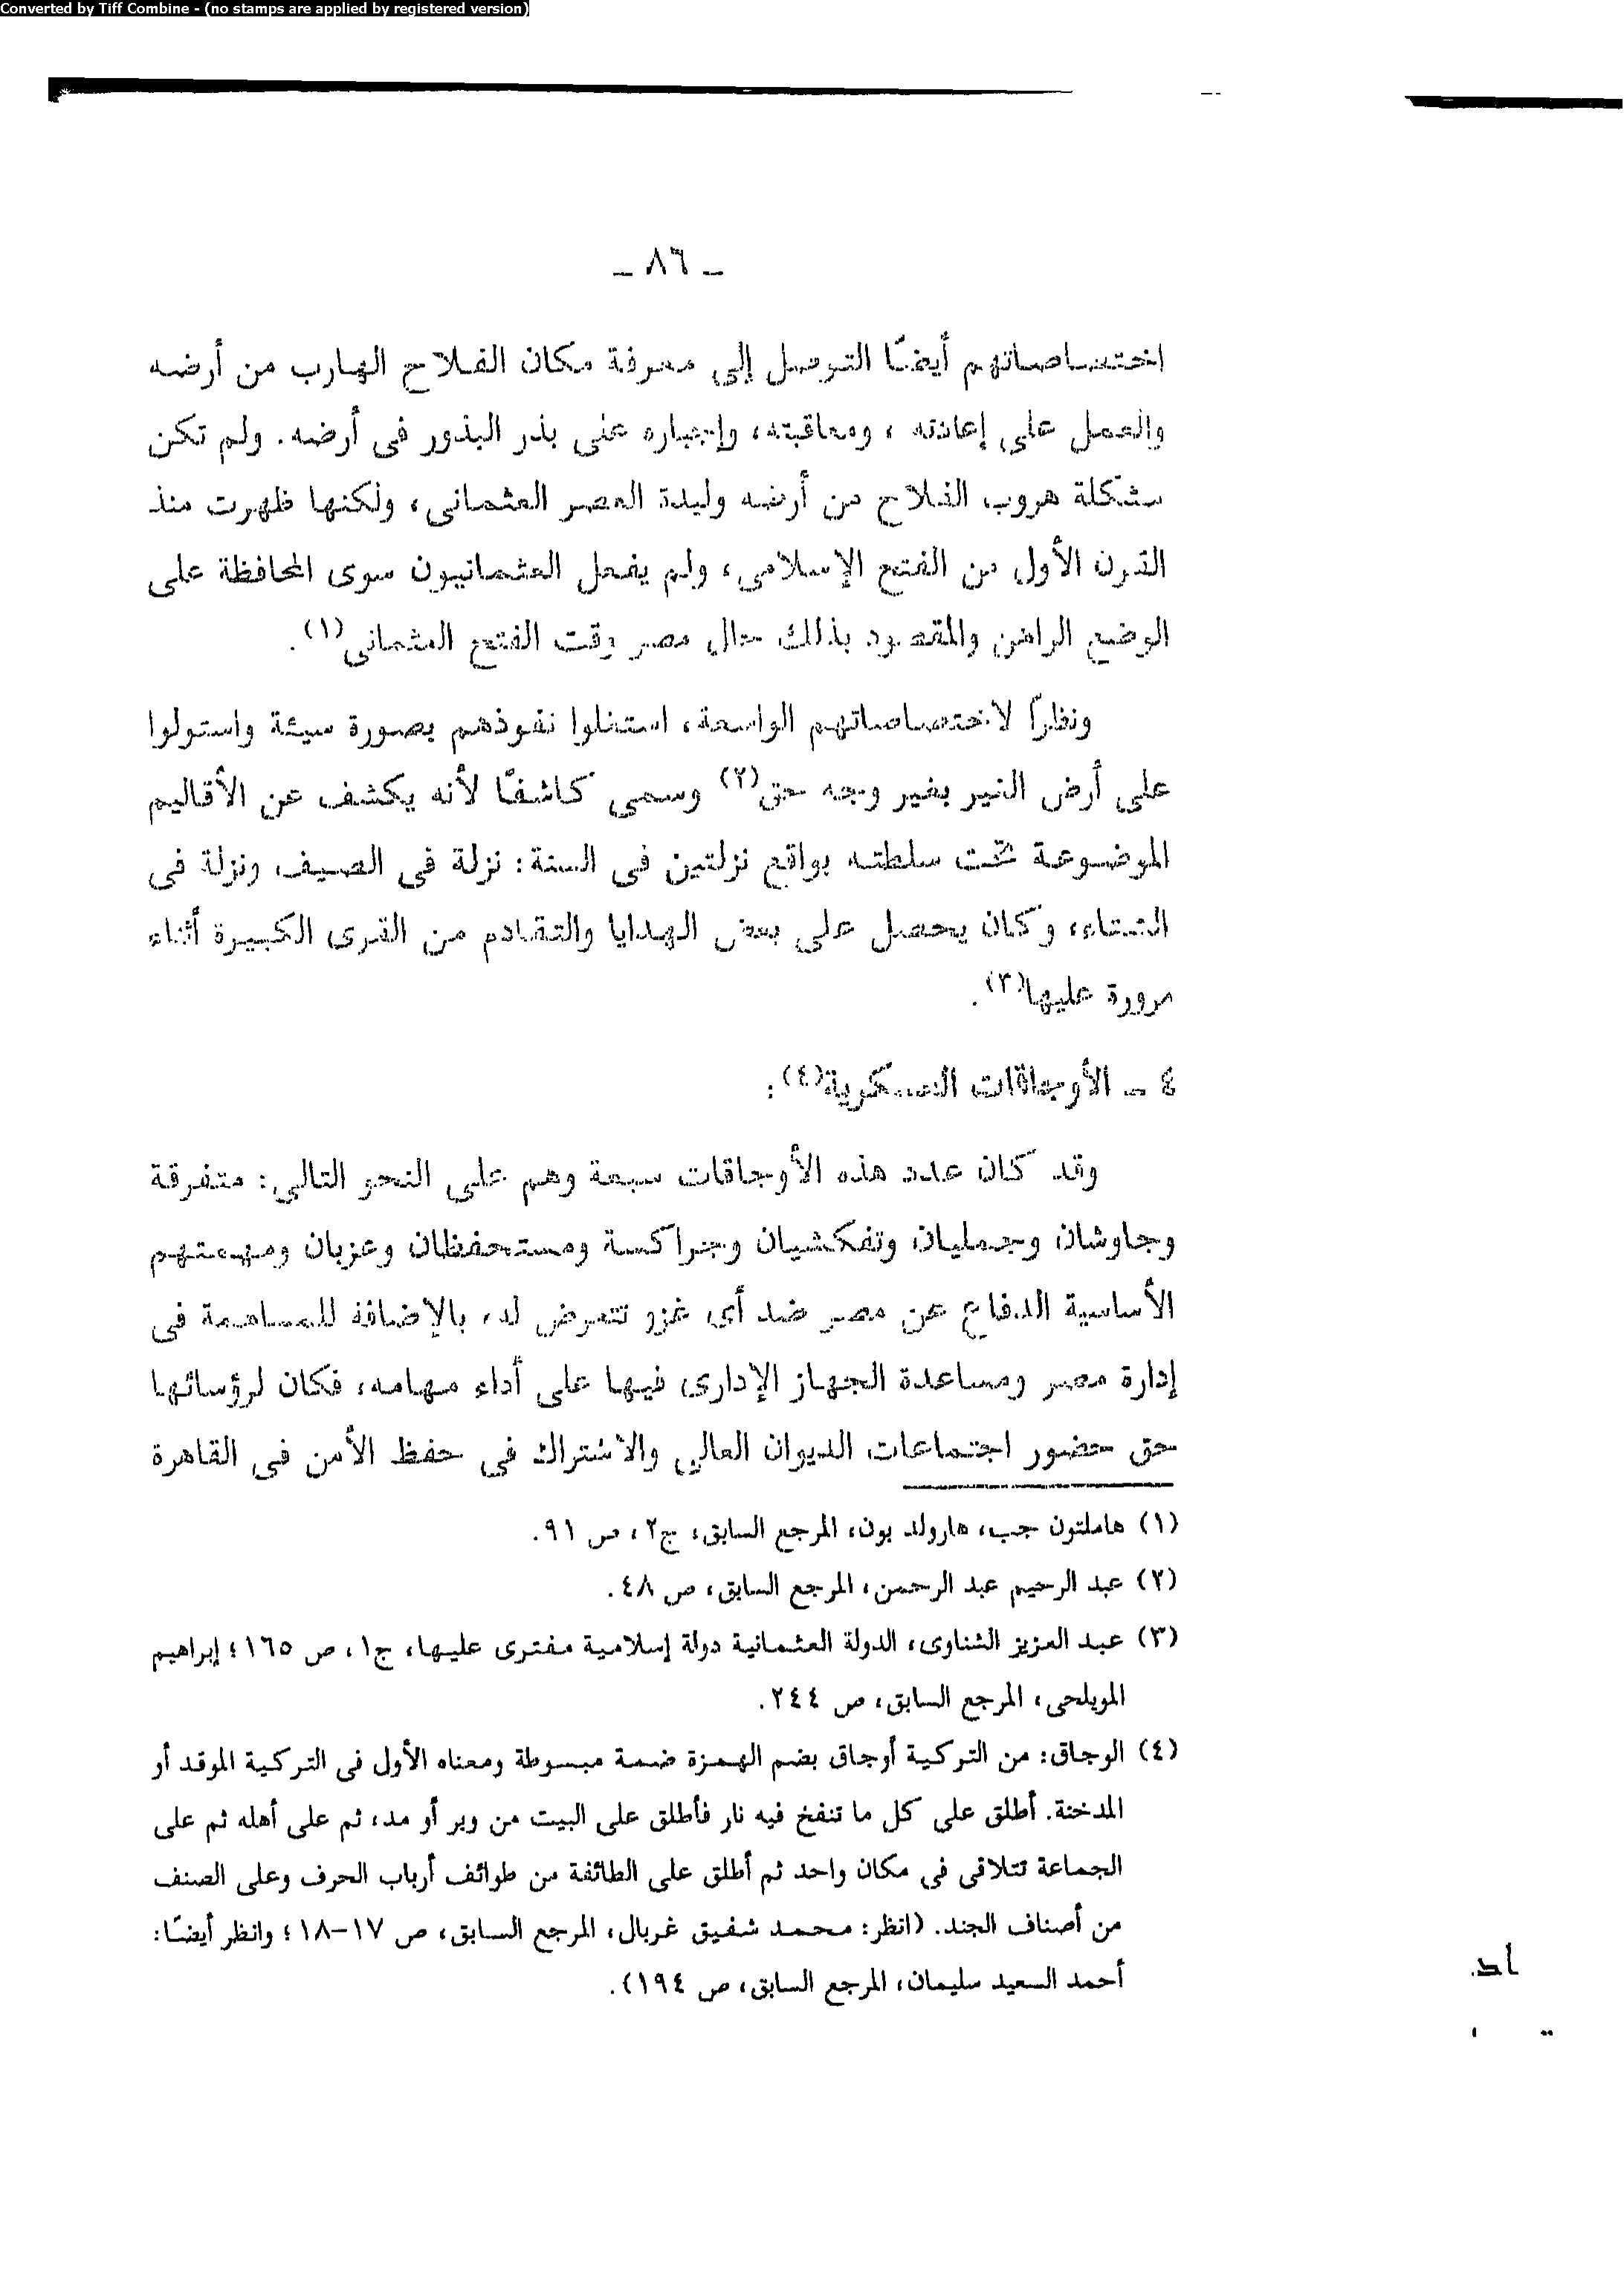 Converted by Tiff Combine - (no stamps are applied by registered version)
ـ ٨٦ ـ
اختصاصاتهم أيضًا التوصل إلى معرفة مكان الفلاح الهارب من أرضه
والعمل على إعادته ، ومعاقبته، وإجباره على بذر البذور فى أرضه. ولم تكن
مشكلة هروب الفلاح من أرضه وليدة العصر العثمانى، ولكنها ظهرت منذ
القرن الأول من الفتح الإسلامى، ولم يفعل العثمانيون سوى المحافظة على
الوضع الراهن والمقصود بذلك حال مصر وقت الفتح العثمانى(١).
ونظرًا لاختصاصاتهم الواسعة، استغلوا نفوذهم بصورة سيئة واستولوا
على أرض الغير بغير وجه حق(٢) وسمى كاشفًا لأنه يكشف عن الأقاليم
الموضوعة تحت سلطته بواقع نزلتين فى السنة: نزلة فى الصيف ونزلة فى
الشتاء، وكان يحصل على بعض الهدايا والتقادم من القرى الكبيرة أثناء
مرورة عليها(٣).
٤ ـ الأوجاقات العسكرية(٤):
وقد كان عدد هذه الأوجاقات سبعة وهم على النحو التالى: متفرقة
وجاوشان وجمليان وتفكشيان وجراكسة ومستحفظان وعزبان ومهمتهم
الأساسية الدفاع عن مصر ضد أى غزو تتعرض له، بالإضافة للمساهمة فى
إدارة مصر ومساعدة الجهاز الإدارى فيها على أداء مهامه، فكان لرؤسائها
حق حضور اجتماعات الديوان العالى والاشتراك فى حفظ الأمن فى القاهرة
(١) هاملتون جب، هارولد بون، المرجع السابق، ج٢، ص ٩١.
(٢) عبد الرحيم عبد الرحمن، المرجع السابق، ص ٤٨.
(٣) عبد العزيز الشناوى، الدولة العثمانية دولة إسلامية مفترى عليها، ج١، ص ١٦٥؛ إبراهيم
المويلحى، المرجع السابق، ص ٢٤٤.
(٤) الوجاق: من التركية أوجاق بضم الهمزة ضمة مبسوطة ومعناه الأول فى التركية الموقد أو
المدخنة. أطلق على كل ما تنفخ فيه نار فأطلق على البيت من وبر أو مد، ثم على أهله ثم على
الجماعة تتلاقى فى مكان واحد ثم أطلق على الطائفة من طوائف أرباب الحرف وعلى الصنف
من أصناف الجند. (انظر: محمد شفيق غربال، المرجع السابق، ص ١٧-١٨؛ وانظر أيضًا:
أحمد السعيد سليمان، المرجع السابق، ص ١٩٤).